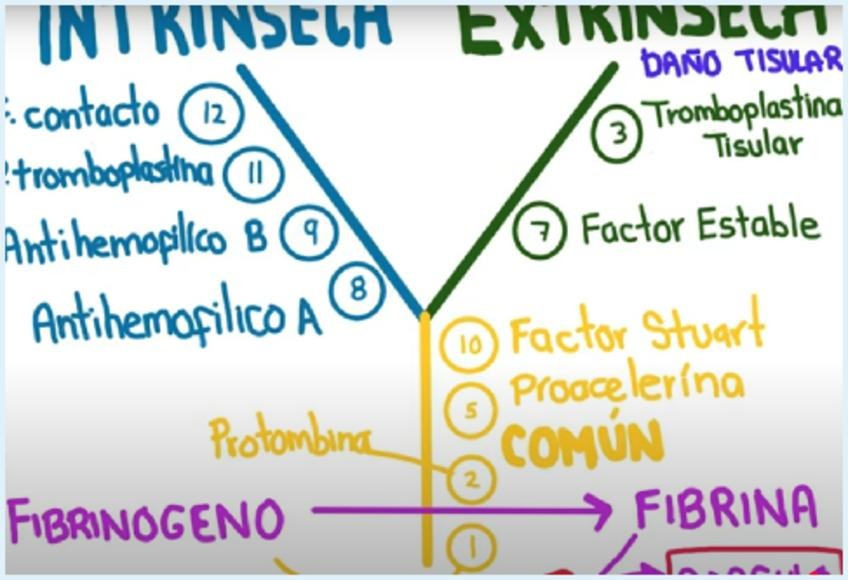 INTRINSECA
EXTRINSECA
DAÑO TISULAR
contacto 12
tromboplastina 11
Antihemofilico B 9
Antihemofilico A 8
3 Tromboplastina
Tisular
7 Factor Estable
10 Factor Stuart
5 Proacelerina
COMÚN
Protombina
2
1
FIBRINOGENO
FIBRINA